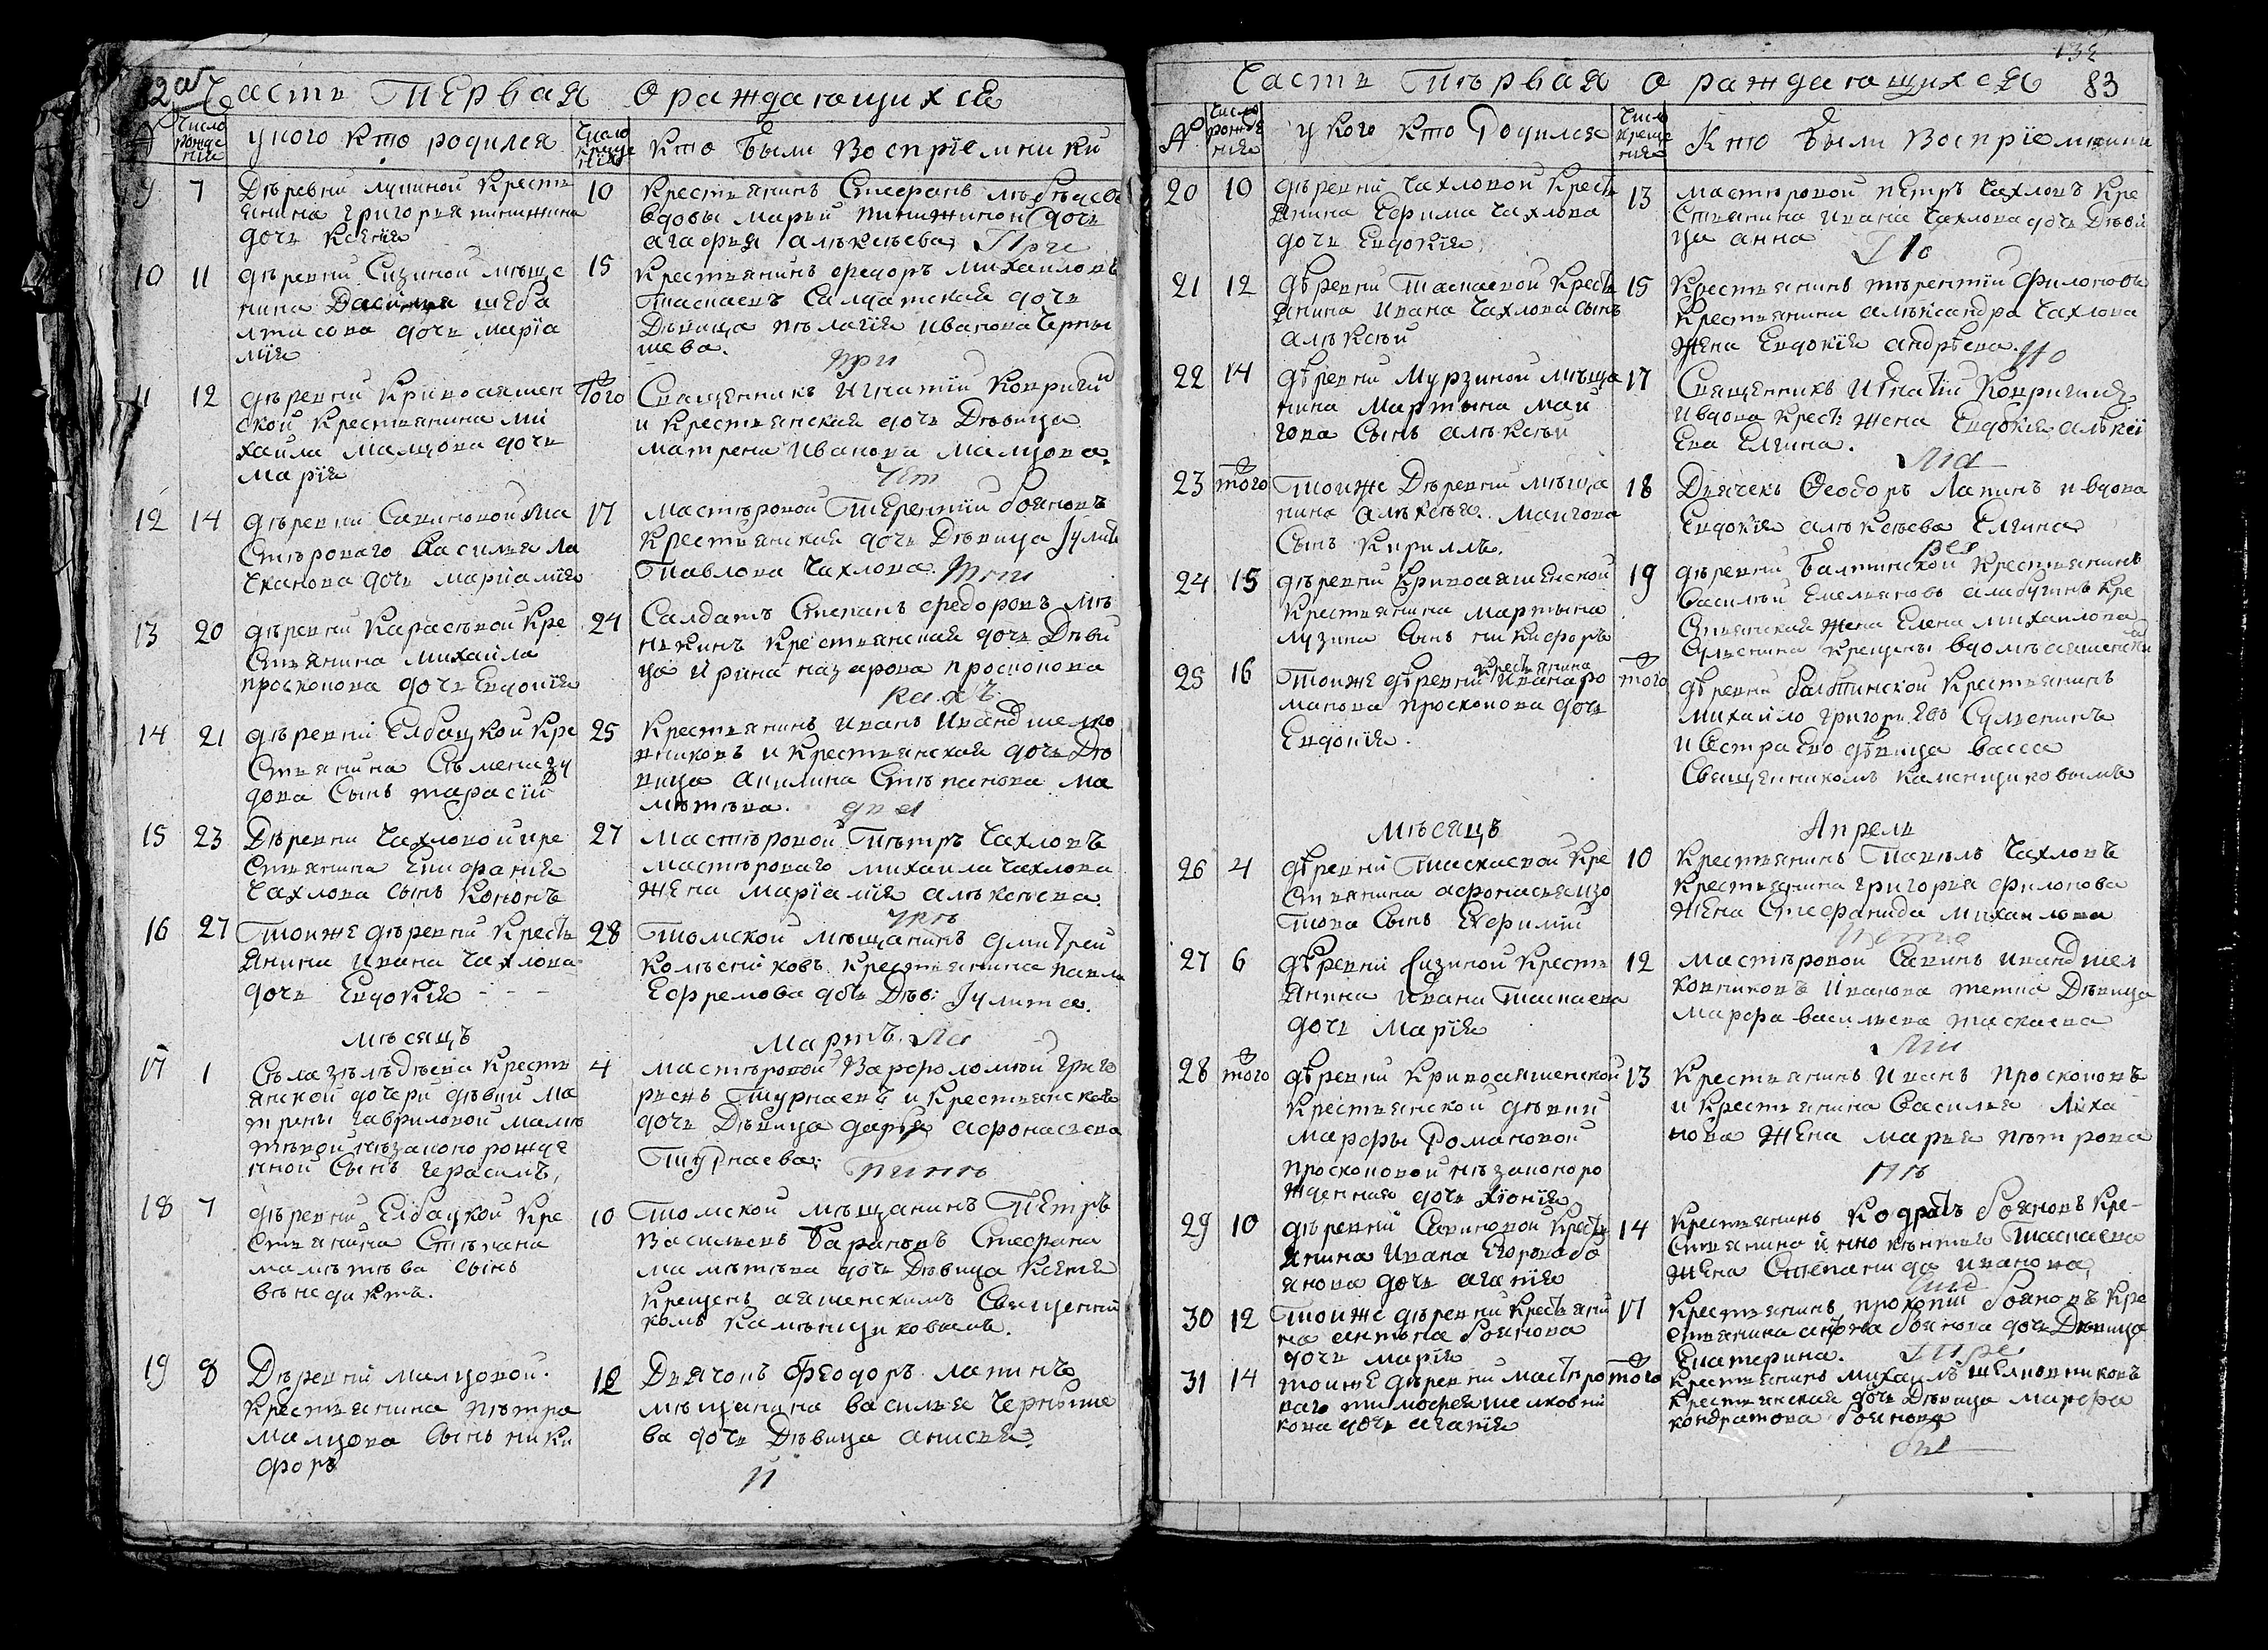 82 об Часть Первая О раждающихся
№
Число рожде нія
у кого кто родился
Число креще нія
кто были Воспріемники
9 7 Деревни лупиной кресть
янина григорья пичюжкина
дочь Ксенія
10 крестьянинъ Стефанъ
вдовы марьи дочь
агафья алексеева
10 11 деревни Сизиной меще
нина Василья шеба
лтасова дочь марїа
мїя
15 крестьянинъ федоръ михаиловъ
Таскаевъ Салдатская дочь
Девица пелагїя иванова Черны
шева.
при
11 12 деревни Кривоаяшен
ской крестьянина ми
хаила малцова дочь
марїя
того Священникъ Игнатїй Ковригин
и крестьянская дочь Девица
матрена Иванова малцова.
чет
12 14 деревни Савиновой ма
стероваго василья ла
скапова дочь марїамїя
17 мастеровой Терентїй бояновъ
крестьянская дочь Девица Іулит
Павлова Чахлова.
13 20 деревни Карасевой кре
стьянина михаила
просколова дочь Евдокїя
24 Салдатъ Степанъ федоровъ
крестьянская дочь Деви
ца Ирина назарова просколова
14 21 деревни Елбацкой кре
стьянина Семена зу
дова Сынъ тарасїй
25 крестьянинъ иванъ иванъ шелко
вниковъ и крестьянская дочь Де
вица акилина Степанова ма
метьева.
15 23 Деревни Чахловой кре
стьянина Епифанїя
Чахлова сынъ кононъ
27 мастеровой Петръ Чахловъ
мастероваго михаила Чахлова
жена марїамїя алексеева.
16 27 Тоиже деревни кресть
янина ивана Чахлова
дочь Евдокїя - - -
28 томской мещанинъ дмитреи
колесниковъ крестьянина павла
Ефремова дочь Дев: Іулитта.
месяцъ Мартъ
17 1 Села зеледеева кресть
янской дочери девки ма
трены гавриловой маме
тевой незаконо рожде
нной Сынъ герасимъ,
4 мастеровой Варфоломей григо
рьевъ Турнаевъ и крестьянская
дочь Девица дарья афонасьева
Турнаева.
18 7 деревни Елбацкой кре
стьянина Степана
маметьева сынъ
венедиктъ.
10 Томской мещанинъ Петръ
Васильевъ барановъ Стефана
маметьева дочь Девица Ксенїя
Крещенъ аяшенскимъ Священни
комъ каменщиковымъ.
19 8 Деревни малцовой
крестьянина петра
малцова сынъ ники
форъ
12 Дьячокъ Феодоръ лапинъ
мещанина василья Черныше
ва дочь Девица анисья.
132
Часть Первая о раждающихся 83
№
Число рожде нія
у кого кто Родился
Число креще нія
Кто были Воспріемники
20 10 деревни Чахловой кресть
янина Ефима Чахлова
дочь Евдокїя
13 мастеровой петръ Чахловъ кре
стьянина ивана Чахлова дочь Деви
ца анна
21 12 деревни Таскаевой кресть
янина ивана Чахлова сынъ
алексей
15 крестьянинъ терентїи филоновъ
крестьянина алеѯандра Чахлова
жена Евдокїя андреева.
22 14 деревни Мурзиной меща
нина мартына маи
гова сынъ алексей
17 Священникъ Игнатїй Ковригинъ
и вдова крест: жена Евдокїя алексе
ева Елгина.
23 того Тоиже деревни меща
нина алексея маигова
сынъ кириллъ.
18 Дьячекъ Феодоръ Лапинъ и вдова
Евдокїя алексеева Елгина
24 15 деревни Кривоаяшенской
крестьянина мартына
лузина сынъ никифоръ
19 деревни балтинской крестьянинъ
василей Емельяновъ алабугинъ кре
стьянская жена Елена михаилова
Сулянина крещены в доме аяшенски
25 16 Тоиже деревни крестьянина Ивана ро
манова просколова дочь
Евдокїя.
того деревни балтинской крестьянинъ
михаило григорьевъ Сулянинъ
и сестра Его девица васса
Священникомъ каменщиковымъ
Месяцъ Апрель
26 4 деревни Таскаевой кре
стьянина афонасья изо
това сынъ Ефимїй
10 крестьянинъ Павелъ Чахловъ
крестьянина григорья филонова
жена Стефанида михаилова
27 6 деревни Сизиной кресть
янина ивана Таскаева
дочь марїя
12 мастеровой Савинъ иванъ шел
ковниковъ иванова тетка Девица
марфа васильева таскаева
28 того деревни Кривоаяшенской
крестьянской девки
марфы Романовой
просколовой незаконоро
жденная дочь хїонїя
13 крестьянинъ иванъ просколовъ
и крестьянина василья Леха
нова жена марья петрова
29 10 деревни Савиновой кресть
янина ивана Егорова бо
янова дочь агапїя
14 крестьянинъ Кодратъ Бояновъ кре-
стьянина инокентия Таскаева
жена Степанида иванова
30 12 тоиже деревни крестьяни
на антона боянова
дочь марїя
17 крестьянинъ прокопїй бояновъ кре
стьянина антона боянова дочь Девица
Екатерина.
31 14 тоиже деревни мастеро
ваго тимофея шелковни
кова дочь агапїя
того крестьянинъ михаилъ шелковниковъ
крестьянская дочь Девица марфа
кондратова боянова